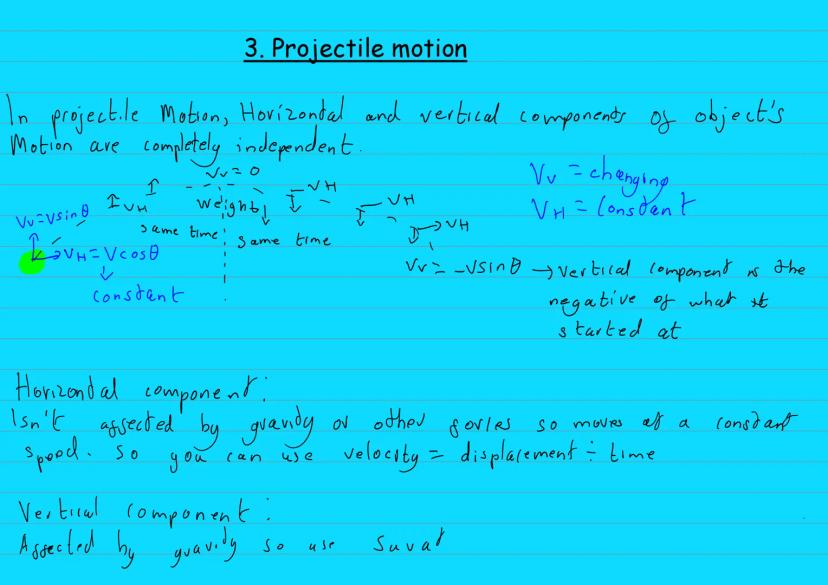 3. Projectile motion
In projectile Motion, Horizontal and vertical components of object's
Motion are completely independent.
Vv = 0
Vv = changing
VH = constant
VH
VH
VH
VH
weight
same time
same time
Vv=Vsinθ
VH = Vcosθ
constant
Vv = -Vsinθ → Vertical component is the
negative of what it
started at
Horizontal component:
Isn't affected by gravity or other forces so moves at a constant
speed. So you can use velocity = displacement ÷ time
Vertical component:
Affected by gravity so use suvat